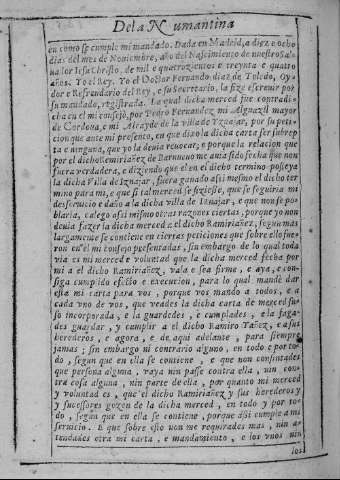 De la Numantina
en como se cumple mi mandado. Dada en Madrid, a diez e ocho
dias del mes de Nouiembre, año del Nascimiento de nuestro Salua
uador Iesu Christo, de mil e quatrozientos e treynta e quatro
años. Yo el Rey. Yo el Doctor Fernando diaz de Toledo, Oy-
dor e Refrendario del Rey, e su Secretario, la fize escreuir por
su mandado, registrada. La qual dicha merced fue contradi-
cha en el mi consejo, por Pedro Fernandez mi Alguazil mayor
de Cordoua, e mi Alcayde de la villa de Yznajar, por su peti-
cion que ante mi presento, en que dixo la dicha carta ser subrep
ta e ninguna, que yo la deuia reuocar, e porque la relacion que
por el dicho Remiriañez de Barnueuo me auia sido fecha que non
fuera verdadera, e diziendo que el en el dicho termino posseya
la dicha Villa de Iznajar, fuera ganado assi mesmo el dicho ter
mino para mi, e que si tal merced se fiziesse, que se seguiria mi
desseruicio e daño a la dicha villa de Iznajar, e que non se po-
blaria, e alego assi mismo otras razones ciertas, porque yo non
deuia fazer la dicha merced al dicho Remiriañez, segun mas
largamente se contiene en ciertas peticiones que sobre ello fue-
ron en el mi consejo presentadas, sin embargo de lo qual toda
via es mi merced e voluntad que la dicha merced fecha por
mi a el dicho Ramiriañez, vala e sea firme, e aya, e con-
siga cumplido efecto e execucion, para lo qual mandè dar
esta mi carta para vos, porque vos mando a todos, e a
cada vno de vos, que veades la dicha carta de merced su-
so incorporada, e la guardedes, e cumplades, e la faga-
des guardar, y cumplir a el dicho Ramiro Yañez, e a sus
herederos, e agora, e de aqui adelante, para siempre
jamas; sin embargo ni contrario alguno, en todo e por to-
do, segun que en ella se contiene, e que non consintades
que persona alguna, vaya nin passe contra ella, nin con-
tra cosa alguna, nin parte de ella, por quanto mi merced
y voluntad es, que el dicho Ramiriañez y sus herederos y
y sucessores gozen de la dicha merced, en todo y por to-
do, segun que en ella se contiene, porque assi cumple a mi
seruicio. E que sobre esto non me requirades mas, nin a-
tendades otra mi carta, e mandamiento, e los vnos nin
los